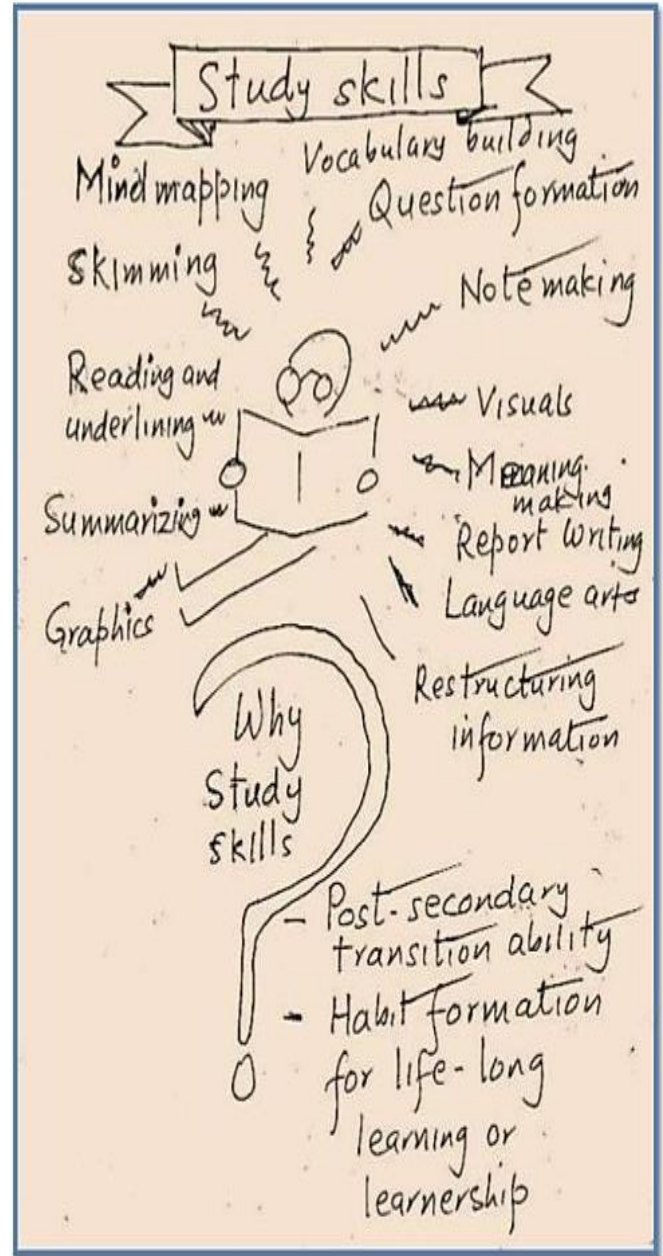 Study skills
Vocabulary building
Mind mapping
Question formation
Skimming
Note making
Reading and
underlining
Visuals
Meaning
making
Summarizing
Report Writing
Language arts
Graphics
Restructuring
information
Why
Study
skills
- Post-secondary
transition ability
- Habit formation
for life-long
learning or
learnership